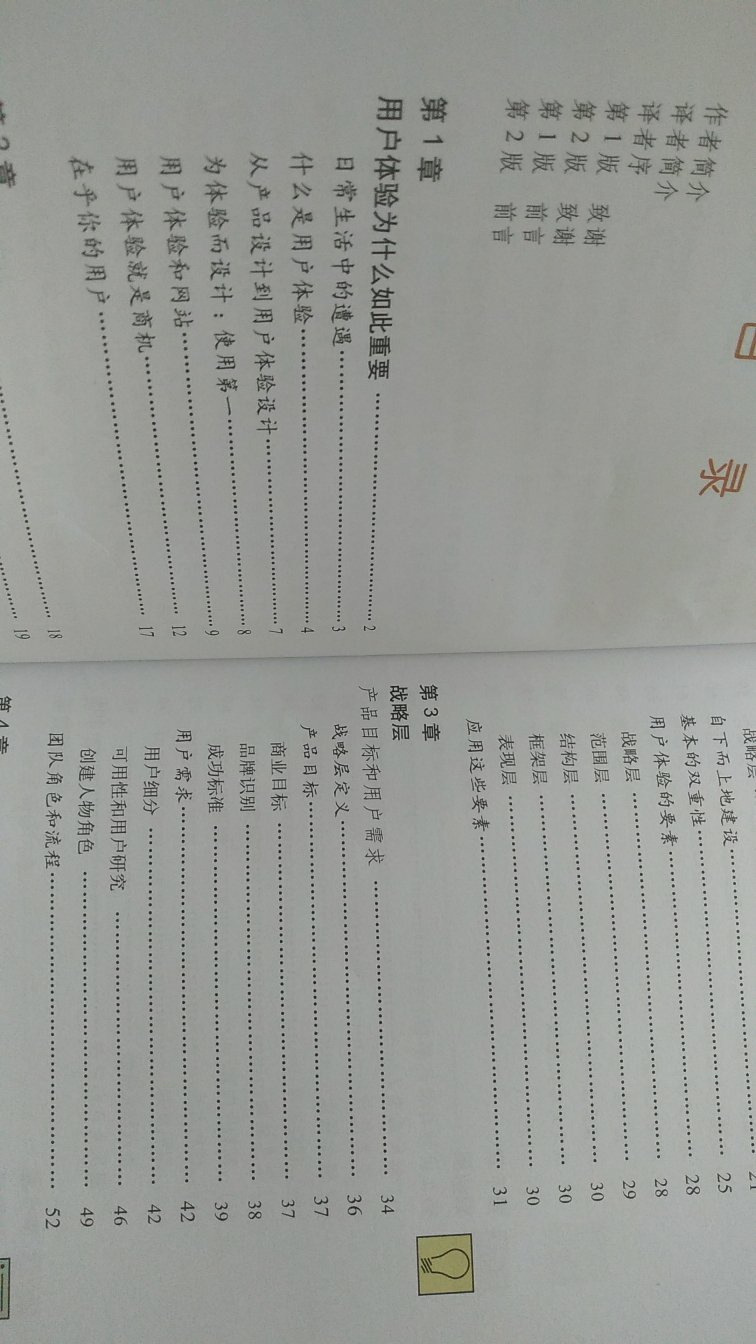 目 录
作者简介
译者简介
译者序
第1版 致谢
第2版 致谢
第1版 前言
第2版 前言
第1章
用户体验为什么如此重要 …… 2
日常生活中的遭遇 …… 3
什么是用户体验 …… 4
从产品设计到用户体验设计 …… 7
为体验而设计：使用第一 …… 8
用户体验和网站 …… 9
用户体验就是商机 …… 12
在乎你的用户 …… 17
第2章
18
19
战略层
自下而上地建设 …… 21
基本的双重性 …… 25
用户体验的要素 …… 28
战略层 …… 28
范围层 …… 29
结构层 …… 30
框架层 …… 30
表现层 …… 30
应用这些要素 …… 31
第3章
战略层
产品目标和用户需求 …… 34
战略层定义 …… 36
产品目标 …… 37
商业目标 …… 37
品牌识别 …… 38
成功标准 …… 39
用户需求 …… 42
用户细分 …… 42
可用性和用户研究 …… 46
创建人物角色 …… 49
团队角色和流程 …… 52
第4章